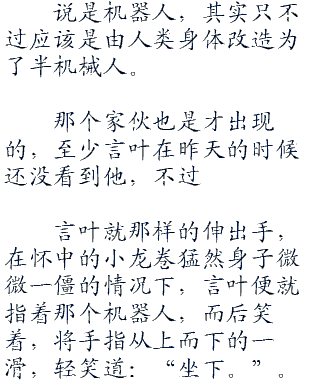 说是机器人，其实只不
过应该是由人类身体改造为
了半机械人。
那个家伙也是才出现
的，至少言叶在昨天的时候
还没看到他，不过
言叶就那样的伸出手，
在怀中的小龙卷猛然身子微
微一僵的情况下，言叶便就
指着那个机器人，而后笑
着，将手指从上而下的一
滑，轻笑道：“坐下。”。